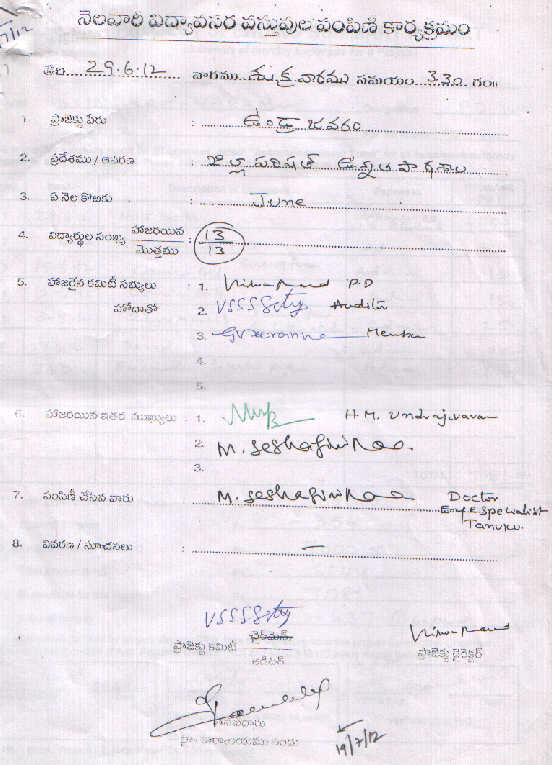 నెలవారీ విద్యావసర వస్తువుల పంపిణీ కార్యక్రమం
తేది 29.6.12 వారము శుక్ర వారము సమయం 3.30 గం॥
1. ప్రాజెక్టు పేరు : ఉండ్రాజవరం
2. ప్రదేశము / ఆవరణ : జిల్లా పరిషత్ ఉన్నత పాఠశాల
3. ఏ నెల కొరకు : June
4. విద్యార్థుల సంఖ్య హాజరయిన : 13
మొత్తము 13
5. హాజరైన కమిటీ సభ్యులు : 1. P.D
హోదాతో 2. VSSSSdty Auditor
3. Member
4.
5.
6. హాజరయిన ఇతర ముఖ్యులు : 1. H.M. Undrajavaram
2. M. Seshagiri Rao.
3.
7. పంపిణీ చేసిన వారు : M. Seshagiri Rao Doctor
Eye Specialist
Tanuku.
8. వివరణ / సూచనలు : —
VSSSSdty
ప్రాజెక్టు కమిటీ చైర్మెన్
ఆడిటర్
ప్రాజెక్టు డైరెక్టర్
19/7/12